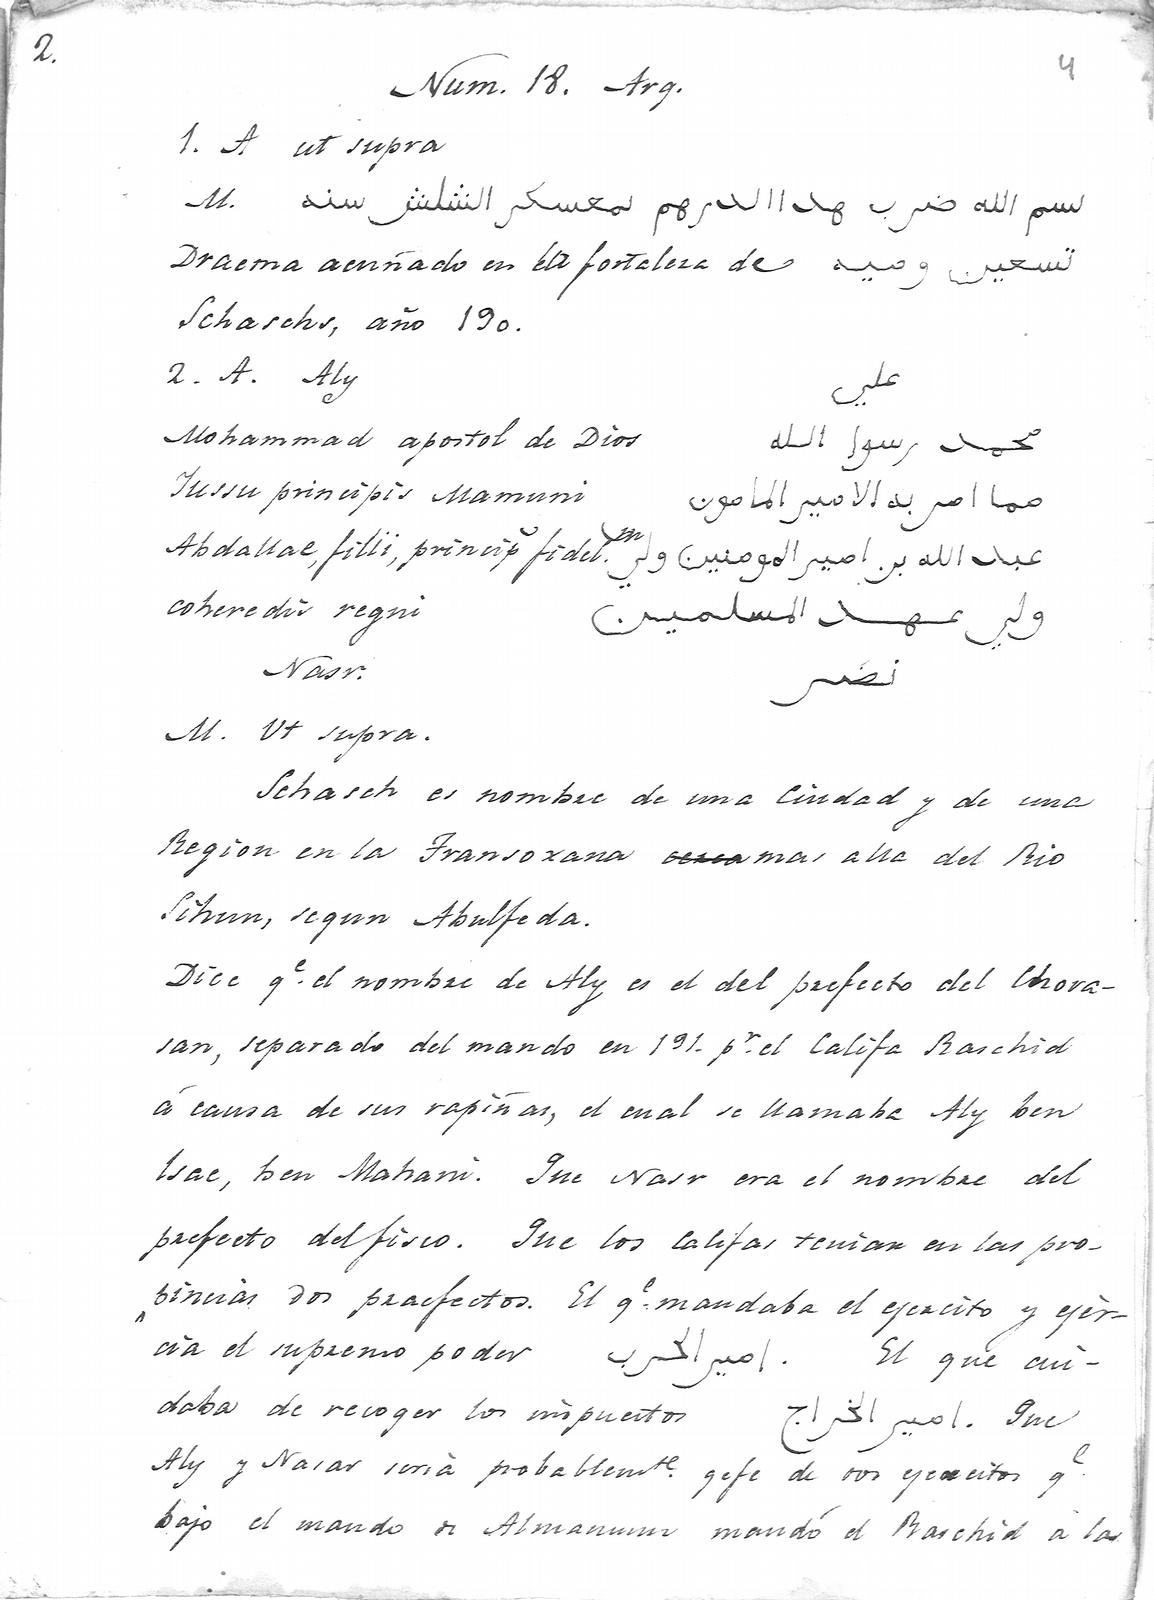 2.
4
Num. 18. Arg.
1. A ut supra
M. بسم الله ضرب هدا الدرهم بمعسكر الشلش سنه
Dracma acuñado en la fortaleza de تسعين وميه
Schaschs, año 190.
2. A. Aly علي
Mohammad apostol de Dios محمد رسوا الله
Jussu principis Mamuni مما امر به الامير المامون
Abdallae, filii, princip fidel.m عبد الله بن امير المومنين ولي
coheredis regni ولي عهد المسلمين
Nasr. نصر
M. Ut supra.
Schasch es nombre de una Ciudad y de una
Region en la Transoxana cerca mas alla del Rio
Sihun, segun Abulfeda.
Dice qe. el nombre de Aly es el del prefecto del Chora-
san, separado del mando en 191. pr. el Califa Raschid
á causa de sus rapiñas, el cual se llamaba Aly ben
Isae, ben Mahani. Que Nasr era el nombre del
prefecto del fisco. Que los Califas tenian en las pro-
pincias dos praefectos. El qe. mandaba el ejercito y ejer-
cia el supremo poder امير الحرب. El que cui-
daba de recoger los impuestos امير الخراج. Que
Aly y Nasar seria probablemte. gefe de los ejercitos qe.
bajo el mando de Almamum mandó el Raschid á las